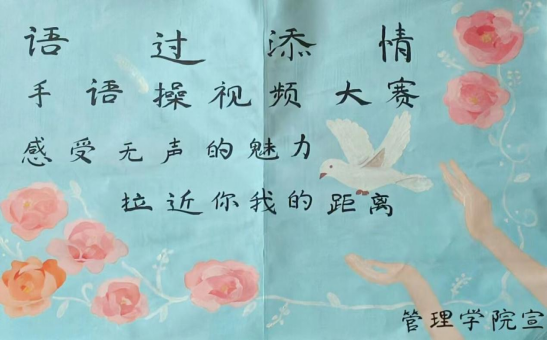 语过添情
手语操视频大赛
感受无声的魅力
拉近你我的距离
管理学院宣